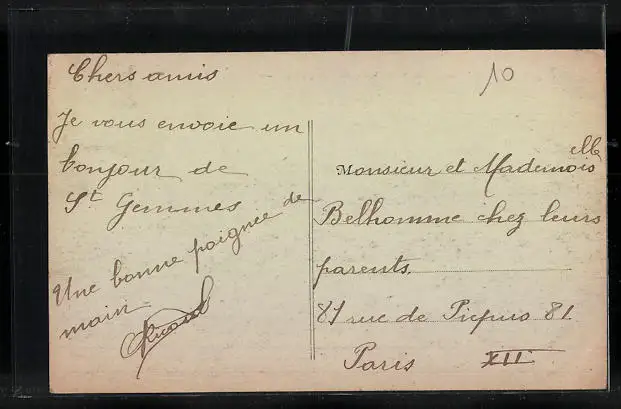 10
Chers amis
Je vous envoie un
bonjour de
St Gemmes
Une bonne poignée de
main
Monsieur et Mademoiselle
Belhomme chez leurs
parents.
81 rue de Picpus 81
Paris XII